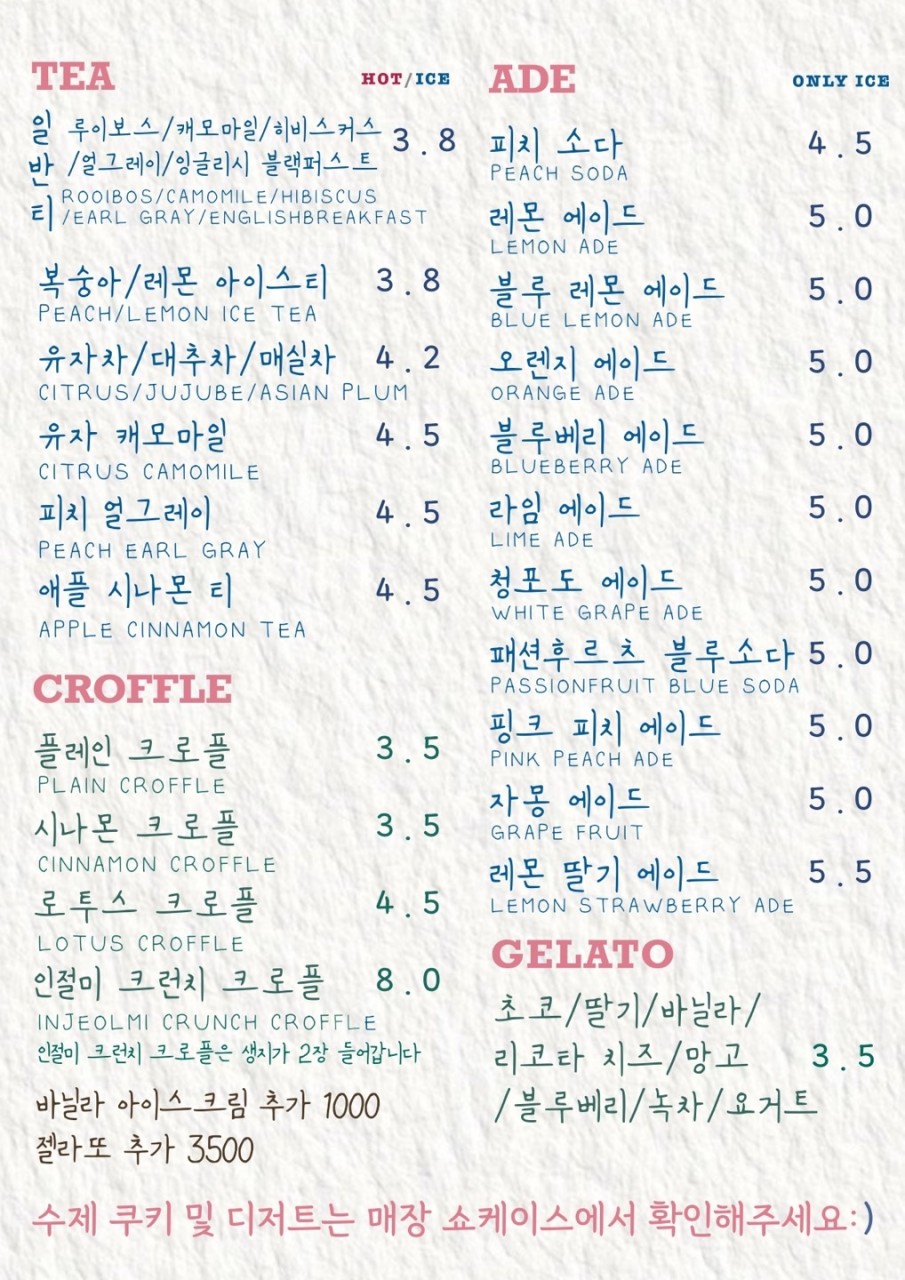 TEA HOT/ICE
일반티
루이보스/캐모마일/히비스커스 3.8
/얼그레이/잉글리시 블랙퍼스트
ROOIBOS/CAMOMILE/HIBISCUS
/EARL GRAY/ENGLISHBREAKFAST
복숭아/레몬 아이스티 3.8
PEACH/LEMON ICE TEA
유자차/대추차/매실차 4.2
CITRUS/JUJUBE/ASIAN PLUM
유자 캐모마일 4.5
CITRUS CAMOMILE
피치 얼그레이 4.5
PEACH EARL GRAY
애플 시나몬 티 4.5
APPLE CINNAMON TEA
CROFFLE
플레인 크로플 3.5
PLAIN CROFFLE
시나몬 크로플 3.5
CINNAMON CROFFLE
로투스 크로플 4.5
LOTUS CROFFLE
인절미 크런치 크로플 8.0
INJEOLMI CRUNCH CROFFLE
인절미 크런치 크로플은 생지가 2장 들어갑니다
바닐라 아이스크림 추가 1000
젤라또 추가 3500
ADE ONLY ICE
피치 소다 4.5
PEACH SODA
레몬 에이드 5.0
LEMON ADE
블루 레몬 에이드 5.0
BLUE LEMON ADE
오렌지 에이드 5.0
ORANGE ADE
블루베리 에이드 5.0
BLUEBERRY ADE
라임 에이드 5.0
LIME ADE
청포도 에이드 5.0
WHITE GRAPE ADE
패션후르츠 블루소다 5.0
PASSIONFRUIT BLUE SODA
핑크 피치 에이드 5.0
PINK PEACH ADE
자몽 에이드 5.0
GRAPE FRUIT
레몬 딸기 에이드 5.5
LEMON STRAWBERRY ADE
GELATO
초코/딸기/바닐라/
리코타 치즈/망고 3.5
/블루베리/녹차/요거트
수제 쿠키 및 디저트는 매장 쇼케이스에서 확인해주세요:)